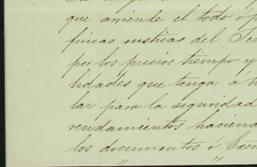 que arriende el todo o p
fincas rusticas del Se
por los precios tiempo y
lidades que tenga á b
lar para la seguridad
rendamientos haciend
los documentos ó Escri